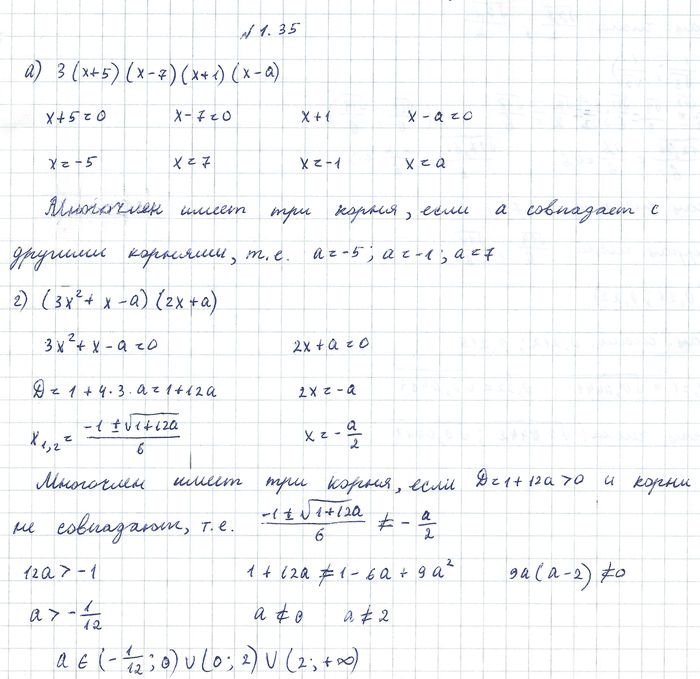 № 1.35
а) 3 (x+5) (x-7) (x+1) (x-a)
x+5=0 x-7=0 x+1 x-a=0
x=-5 x=7 x=-1 x=a
Многочлен имеет три корня, если a совпадает с
другими корнями, т.е. a=-5; a=-1; a=7
г) (3x²+x-a) (2x+a)
3x²+x-a=0 2x+a=0
D=1+4·3·a=1+12a 2x=-a
x₁,₂= (-1±√(1+12a))/6 x=-a/2
Многочлен имеет три корня, если D=1+12a>0 и корни
не совпадают, т.е. (-1±√(1+12a))/6 ≠ -a/2
12a>-1 1+12a≠1-6a+9a² 9a(a-2)≠0
a>-1/12 a≠0 a≠2
a∈(-1/12;0)∪(0;2)∪(2;+∞)